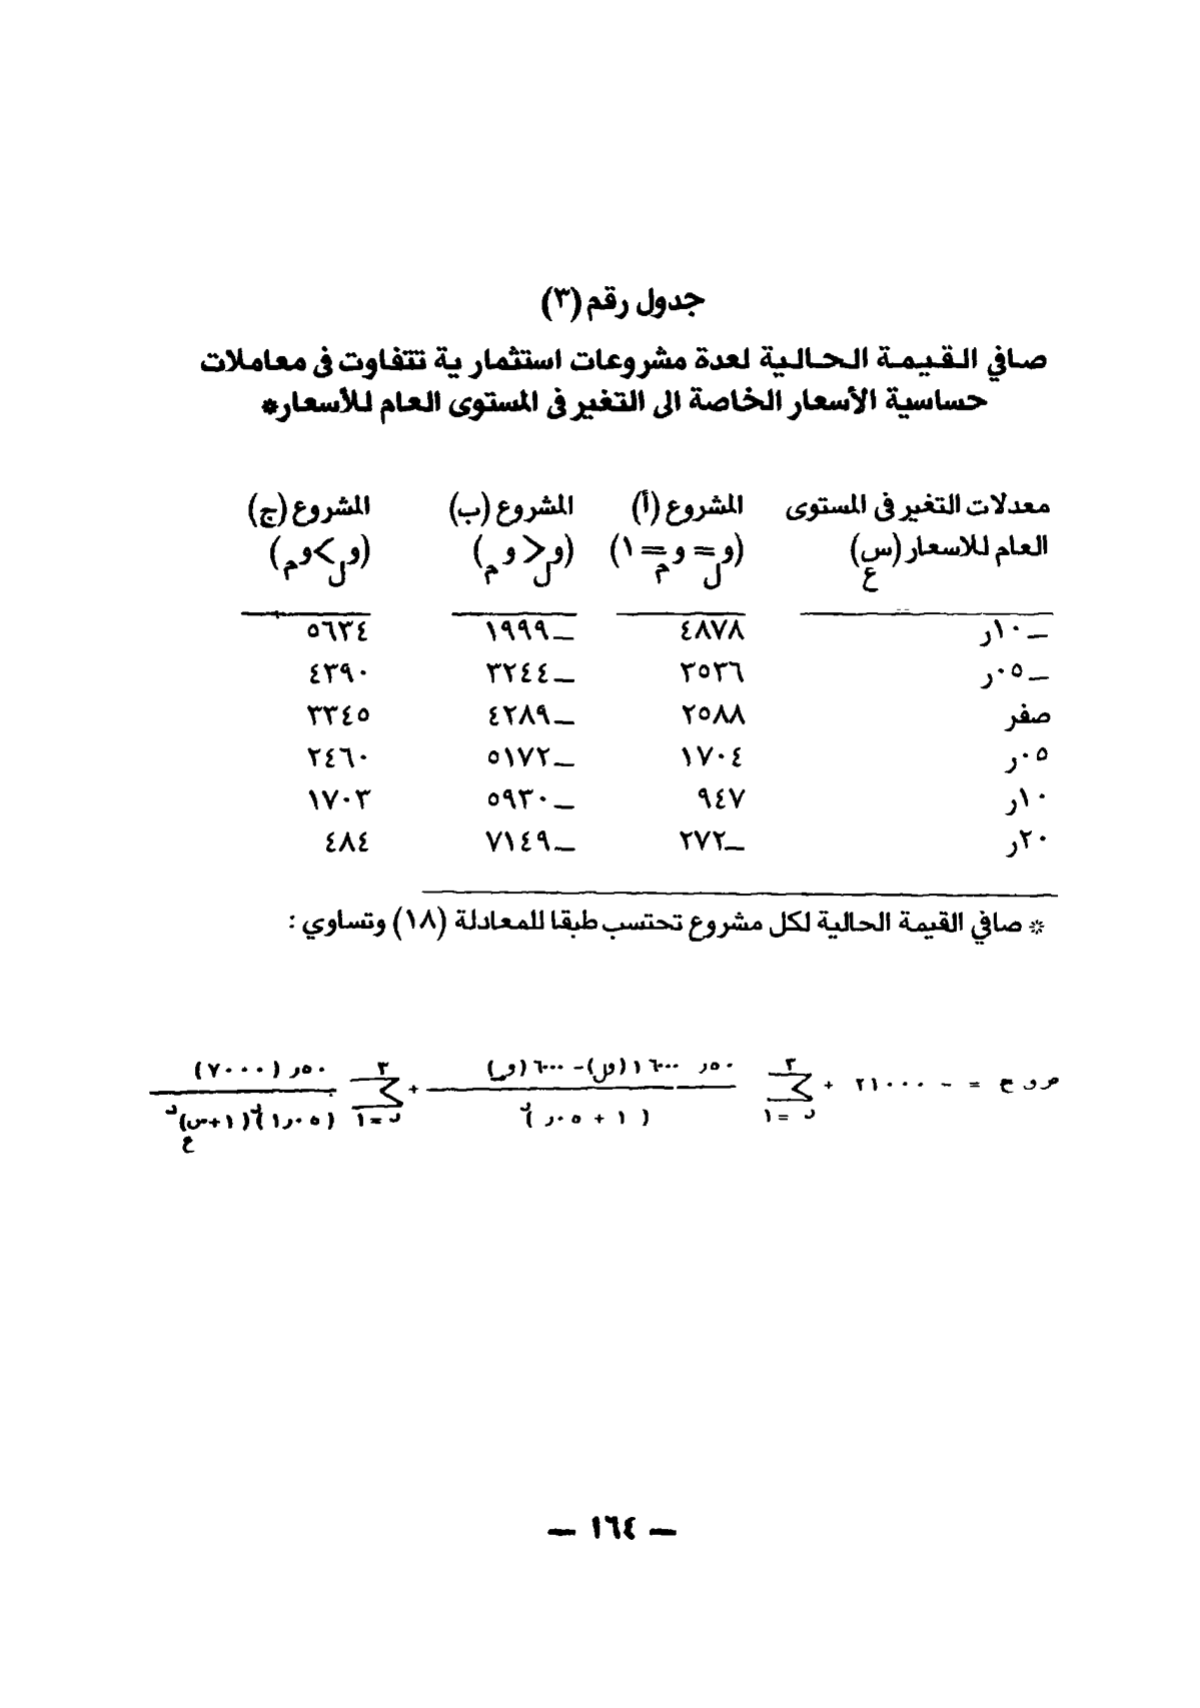 جدول رقم (٣)
صافي القيمة الحالية لعدة مشروعات استثمارية تتفاوت فى معاملات
حساسية الأسعار الخاصة الى التغير فى المستوى العام للأسعار*
معدلات التغير فى المستوى المشروع (أ) المشروع (ب) المشروع (ج)
العام للاسعار (س ع) (و ل = و م = ١) (و ل > و م) (و ل < و م)
ــ ١٠ر ٤٨٧٨ ــ ١٩٩٩ ٥٦٣٤
ــ ٠٥ر ٣٥٣٦ ــ ٣٢٤٤ ٤٣٩٠
صفر ٢٥٨٨ ــ ٤٢٨٩ ٣٣٤٥
٠٥ر ١٧٠٤ ــ ٥١٧٢ ٢٤٦٠
١٠ر ٩٤٧ ــ ٥٩٣٠ ١٧٠٣
٢٠ر ــ ٢٧٢ ــ ٧١٤٩ ٤٨٤
* صافي القيمة الحالية لكل مشروع تحتسب طبقا للمعادلة (١٨) وتساوي :
٣ ٥٠ر ١٦٠٠٠ (ول) - ٦٠٠٠ (وم) ٣ ٥٠ر (٧٠٠٠)
ص و ح = - ٢١٠٠٠ + ∑ + ∑
ں = ١ (١ + ٠٥ر)ں ں = ١ (١٫٠٥)ں (١ + س ع)ں
ــ ١٦٤ ــ